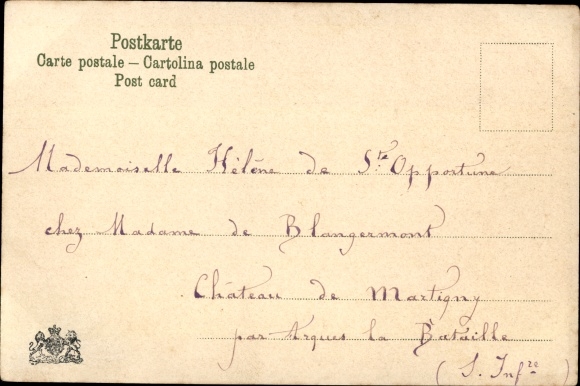 Postkarte
Carte postale – Cartolina postale
Post card
Mademoiselle Hélène de Ste Opportune
chez Madame de Blangermont
Château de Martigny
par Arques la Bataille
( S. Infre )